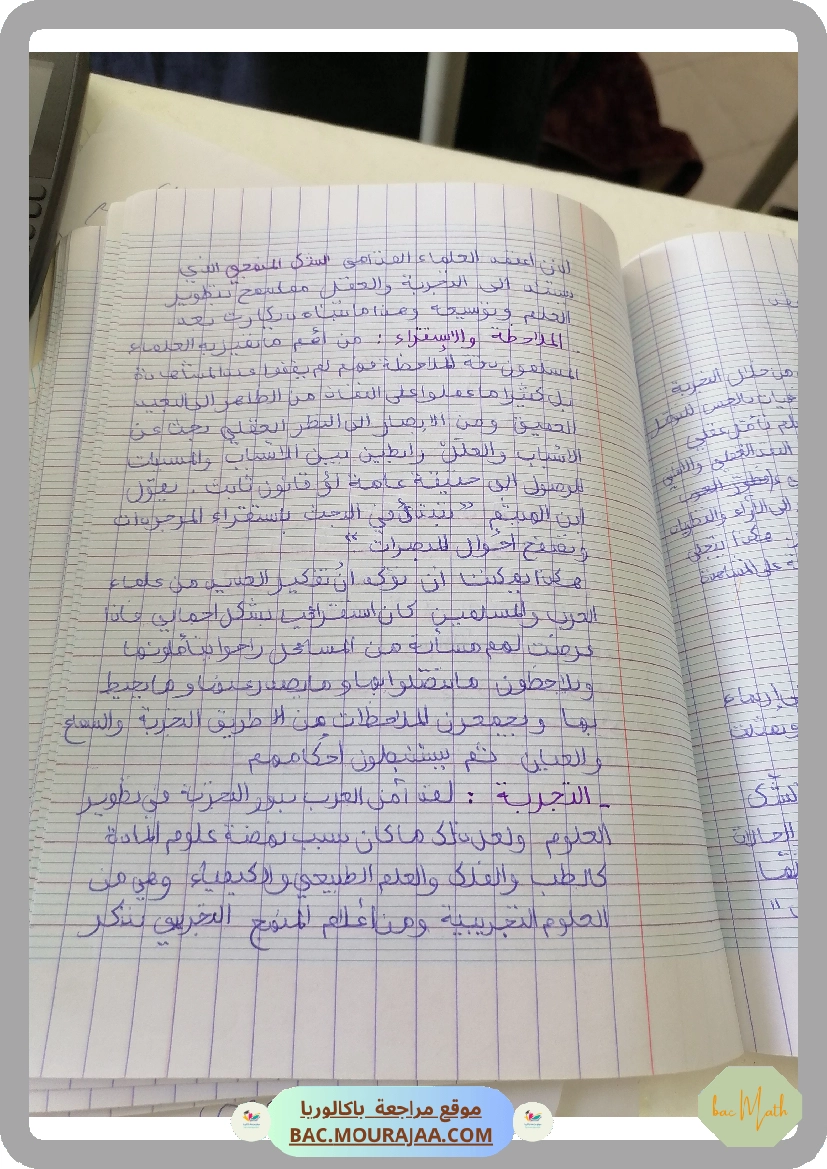 لان اعتمد العلماء القدامى الشك المنهجي الذي
يستند الى التجربة والعقل كمنهج لتطوير
العلم وتوسيعه وهذا ما تبناه ديكارت بعد
الملاحظة والاستقراء : من أهم ما تميز به العلماء
المسلمون دقة الملاحظة فهم لم يقفوا عند المشاهدة
بل كثيرا ما عملوا على النفاذ من الظاهر الى البعيد
العميق ومن الابصار الى النظر العقلي بحثا عن
الأسباب والعلل رابطين بين الأسباب والمسببات
للوصول الى حقيقة عامة او قانون ثابت . يقول
ابن الهيثم " نبتدئ في البحث باستقراء الموجودات
وتصفح أحوال المبصرات "
هكذا يمكننا ان نؤكد ان تفكير العديد من علماء
العرب والمسلمين كان استقرائي بشكل اجمالي فاذا
عرضت لهم مسألة من المسائل راحوا يتأملونها
ويلاحظون ما يتصل بها وما يصدر عنها وما يحيط
بها ويجمعون الملاحظات عن الطريق التجربة والسماع
والعيان ثم يستنبطون أحكامهم
ـ التجربة : لقد آمن العرب بدور التجربة في تطوير
العلوم ولعل ذلك ما كان سبب نهضة علوم المادة
كالطب والفلك والعلم الطبيعي والكيمياء وهي من
العلوم التجريبية ومن أعلام المنهج التجريبي نذكر
من خلال التجربة
على المشاهدة
الشك
موقع مراجعة باكالوريا
BAC.MOURAJAA.COM
bac Math